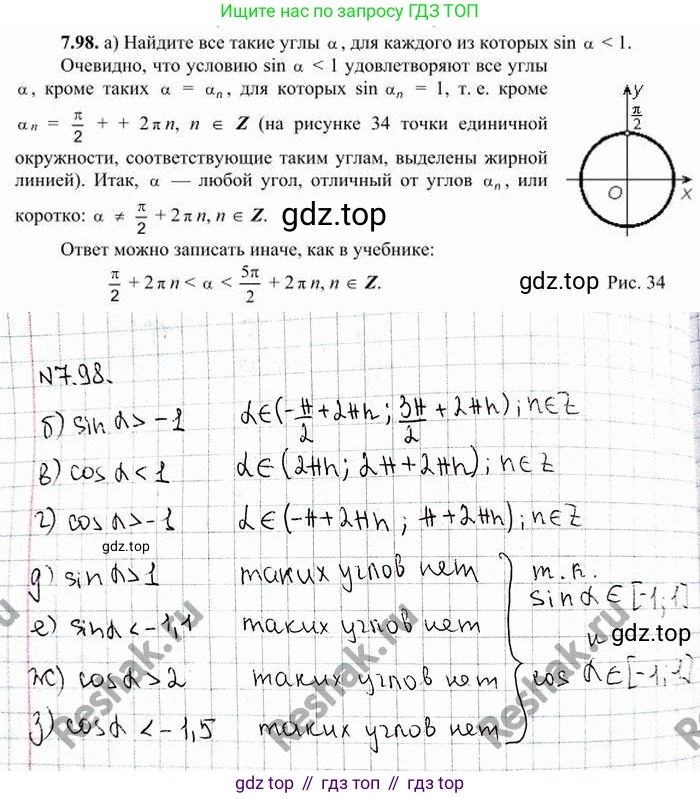 Увеличить картинку легко! Найдите нас по запросу ГДЗ ТОП
7.98. а) Найдите все такие углы α, для каждого из которых sin α < 1.
Очевидно, что условию sin α < 1 удовлетворяют все углы
α, кроме таких α = αₙ, для которых sin αₙ = 1, т. е. кроме
αₙ = π/2 + + 2πn, n ∈ Z (на рисунке 34 точки единичной
окружности, соответствующие таким углам, выделены жирной
линией). Итак, α — любой угол, отличный от углов αₙ, или
коротко: α ≠ π/2 + 2πn, n ∈ Z.
gdz.top
Ответ можно записать иначе, как в учебнике:
π/2 + 2πn < α < 5π/2 + 2πn, n ∈ Z.
gdz.top
y
π/2
O
x
Рис. 34
N7.98.
б) sin α > -1 α ∈ (-π/2 + 2πn; 3π/2 + 2πn); n ∈ Z
в) cos α < 1 α ∈ (2πn; 2π + 2πn); n ∈ Z
г) cos α > -1 α ∈ (-π + 2πn; π + 2πn); n ∈ Z
gdz.top
д) sin α > 1 таких углов нет
е) sin α < -1,1 таких углов нет
ж) cos α > 2 таких углов нет
з) cos α < -1,5 таких углов нет
т.к.
sin α ∈ [-1; 1]
и
gdz.top
cos α ∈ [-1; 1]
Reshak.ru
Reshak.ru
Reshak.ru
gdz top // гдз топ // gdz top // гдз топ